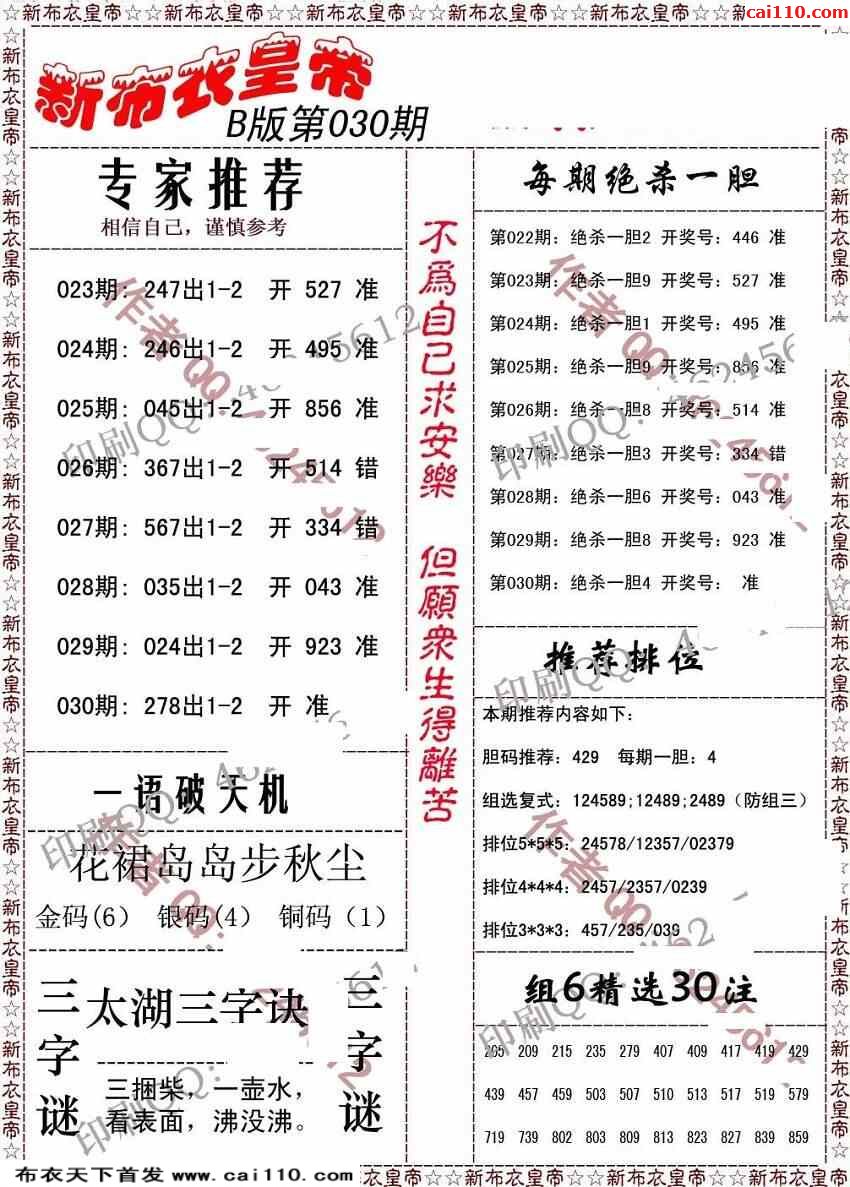 ☆☆新布衣皇帝☆☆新布衣皇帝☆☆新布衣皇帝☆☆新布衣皇帝☆☆新布衣皇帝☆☆新布衣皇帝☆☆新
cai110.com
新布衣皇帝
B版第030期
专家推荐
相信自己，谨慎参考
023期: 247出1-2 开 527 准
024期: 246出1-2 开 495 准
025期: 045出1-2 开 856 准
026期: 367出1-2 开 514 错
027期: 567出1-2 开 334 错
028期: 035出1-2 开 043 准
029期: 024出1-2 开 923 准
030期: 278出1-2 开 准
一语破天机
花裙岛岛步秋尘
金码(6) 银码(4) 铜码（1）
三字谜
太湖三字诀
三捆柴，一壶水，
看表面，沸没沸。
三字谜
不為自己求安樂 但願衆生得離苦
每期绝杀一胆
第022期: 绝杀一胆2 开奖号: 446 准
第023期: 绝杀一胆9 开奖号: 527 准
第024期: 绝杀一胆1 开奖号: 495 准
第025期: 绝杀一胆9 开奖号: 856 准
第026期: 绝杀一胆8 开奖号: 514 准
第027期: 绝杀一胆3 开奖号: 334 错
第028期: 绝杀一胆6 开奖号: 043 准
第029期: 绝杀一胆8 开奖号: 923 准
第030期: 绝杀一胆4 开奖号: 准
推荐排位
本期推荐内容如下:
胆码推荐: 429 每期一胆: 4
组选复式: 124589;12489;2489（防组三）
排位5*5*5: 24578/12357/02379
排位4*4*4: 2457/2357/0239
排位3*3*3: 457/235/039
组6精选30注
205 209 215 235 279 407 409 417 419 429
439 457 459 503 507 510 513 517 519 579
719 739 802 803 809 813 823 827 839 859
布衣天下首发 www.cai110.com
衣皇帝☆☆新布衣皇帝☆☆新布衣皇帝☆☆新布衣皇帝☆☆